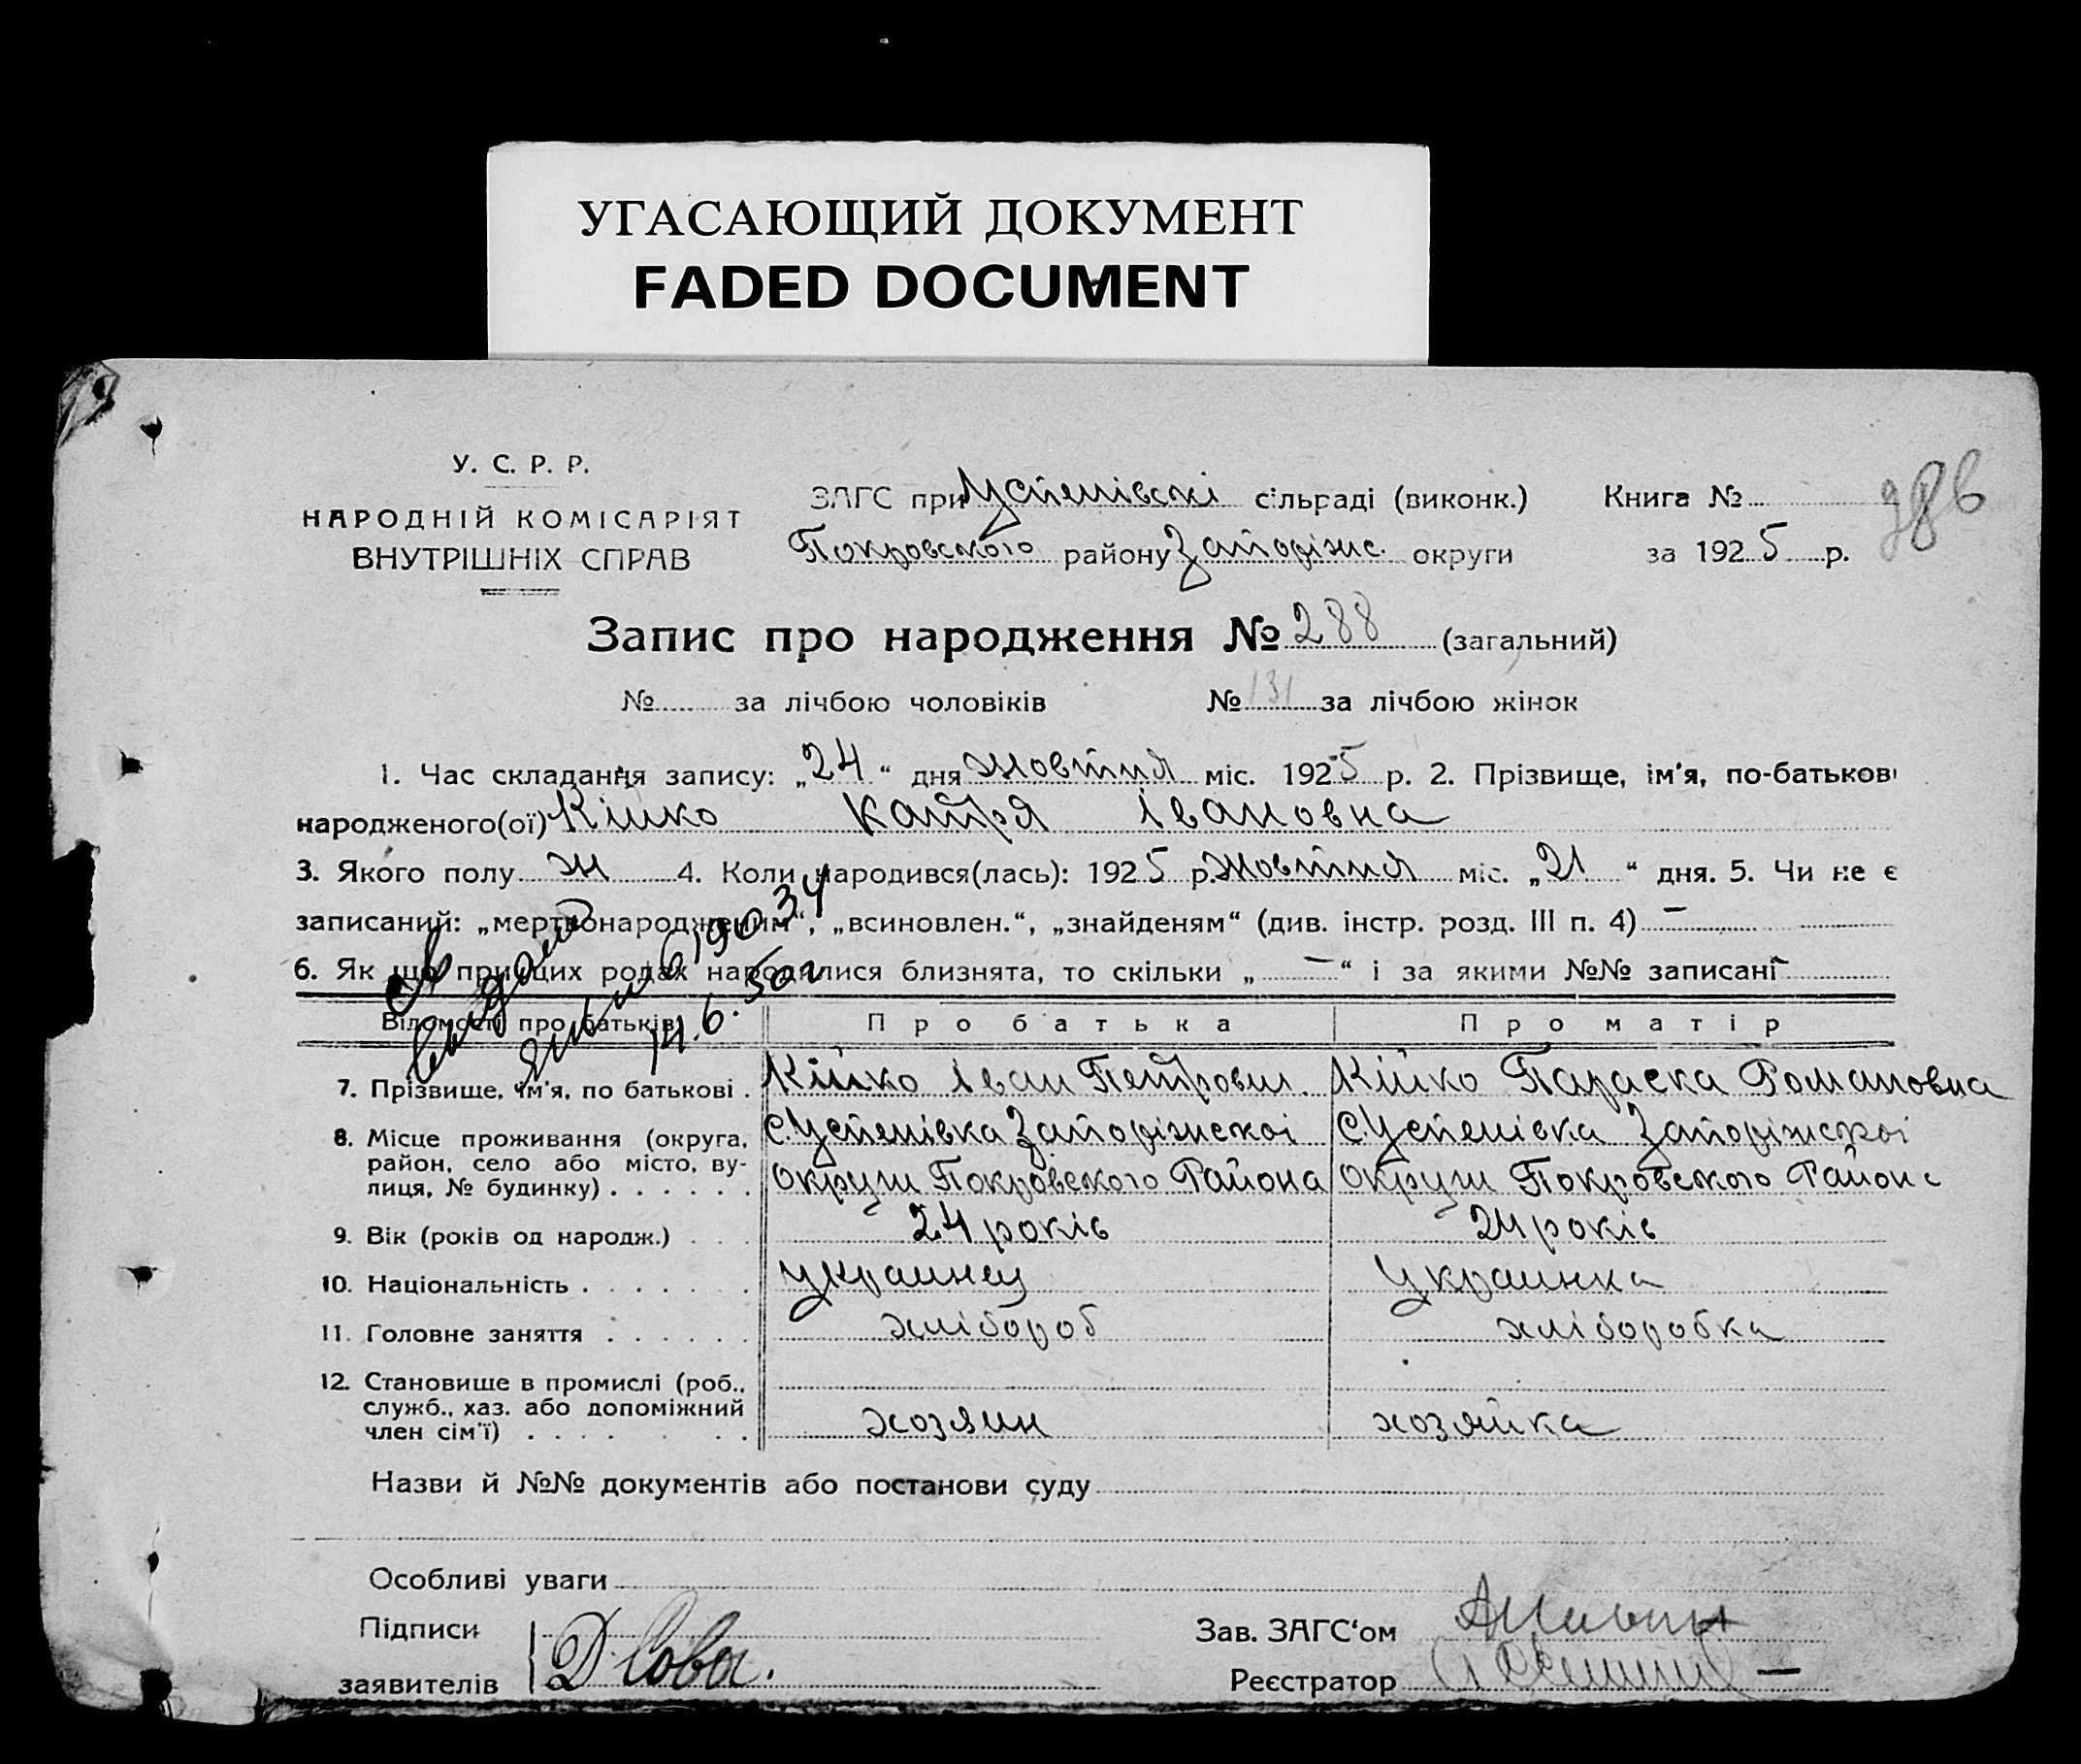 УГАСАЮЩИЙ ДОКУМЕНТ
FADED DOCUMENT
У. С. Р. Р.
НАРОДНІЙ КОМІСАРІЯТ
ВНУТРІШНІХ СПРАВ
ЗАГС при Успенівскі сільраді (виконк.)
Покровского району Запоріжс. округи
Книга №
за 1925 р.
Запис про народження № 288 (загальний)
№ за лічбою чоловіків № 131 за лічбою жінок
1. Час складання запису: „24“ дня жовтня міс. 1925 р. 2. Прізвище, ім'я, по-батькові
народженого(ої) Кійко Катря Івановна
3. Якого полу ж 4. Коли народився(лась): 1925 р. жовтня міс. „21“ дня. 5. Чи не є
записаний: „мертвонародженим“, „всиновлен.“, „знайденям“ (див. інстр. розд. III п. 4) —
6. Як що при цих родах народилися близнята, то скільки „—“ і за якими №№ записані —
14.6.50г
Відомості про батьків Про батька Про матір
7. Прізвище, ім'я, по батькові . Кійко Іван Петрович. Кійко Параска Романовна
8. Місце проживання (округа, район, село або місто, вулиця, № будинку) . . . . . .
с. Успенівка Запоріжскоі с. Успенівка Запоріжскоі
округи Покровского Района округи Покровского Района
9. Вік (років од народж.) . . . 24 років 24 років
10. Національність . . . . . . . украинец Украинка
11. Головне заняття . . . . . . хлібороб хліборобка
12. Становище в промислі (роб.,
служб., хаз. або допоміжний
член сім'ї) . . . . . . . хозяин хозяйка
Назви й №№ документів або постанови суду
Особливі уваги
Підписи
заявителів Д Сова.
Зав. ЗАГС‘ом
Реєстратор